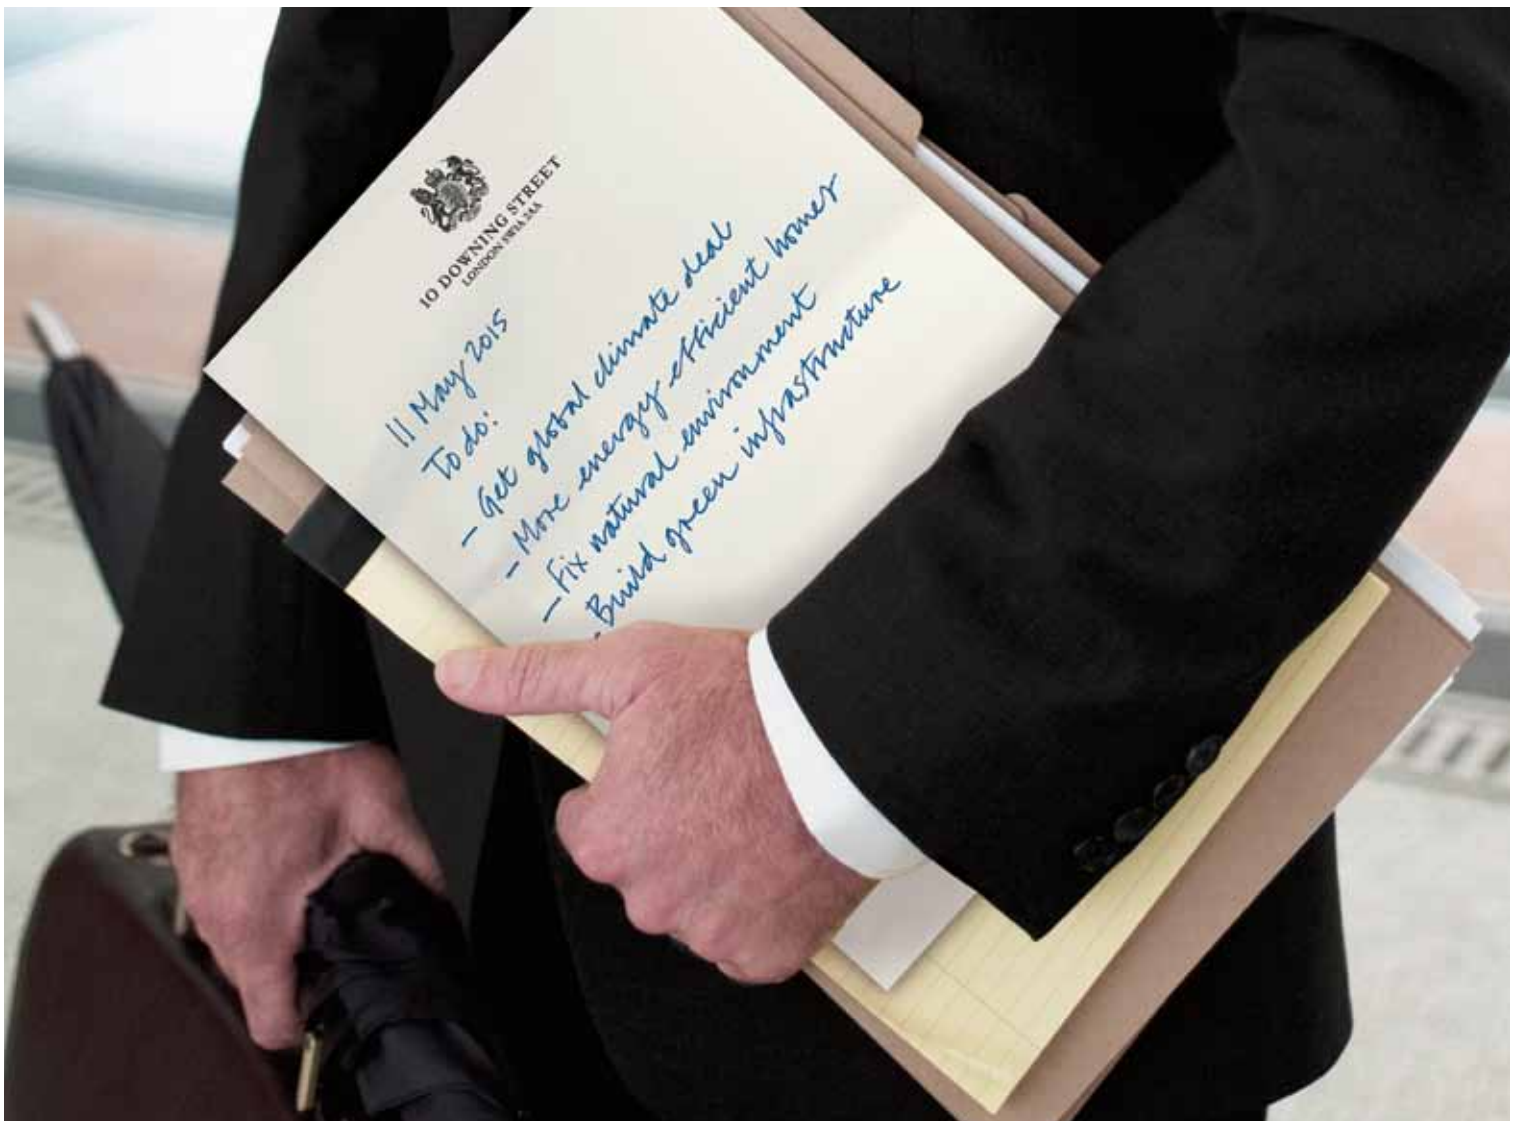 10 DOWNING STREET
LONDON SW1A 2AA
11 May 2015
To do:
- Get global climate deal
- More energy efficient homes
- Fix natural environment
- Build green infrastructure